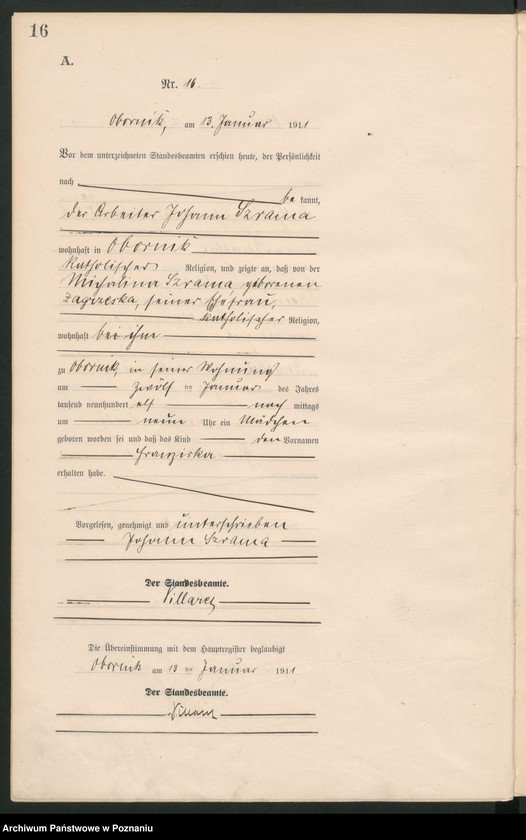 16
A.
Nr. 16.
Obornik, am 13. Januar 1911
Vor dem unterzeichneten Standesbeamten erschien heute, der Persönlichkeit
nach
be kannt,
der Arbeiter Johann Szrama
wohnhaft in Obornik
katholischer Religion, und zeigte an, daß von der
Michalina Szrama geborenen
seiner Ehefrau,
katholischer Religion,
wohnhaft bei ihm
zu Obornik, in seiner Wohnung
am zwölf ten Januar des Jahres
tausend neunhundert elf nach mittags
um neun Uhr ein Mädchen
geboren worden sei und daß das Kind den Vornamen
Franziska
erhalten habe.
Vorgelesen, genehmigt und unterschrieben
Johann Szrama
Der Standesbeamte.
Villaret
Die Übereinstimmung mit dem Hauptregister beglaubigt
Obornik am 13 ten Januar 1911
Der Standesbeamte.
Villaret
Archiwum Państwowe w Poznaniu